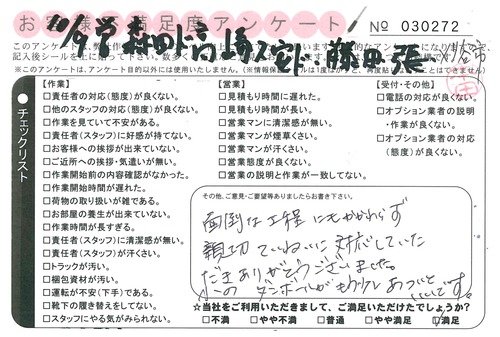 お客様不満足度アンケート
No 030272
※このアンケートは、アンケート目的以外には使用いたしません。
チェックリスト
【作業】
□責任者の対応(態度)が良くない。
□他のスタッフの対応(態度)が良くない。
□作業を見ていて不安がある。
□責任者(スタッフ)に好感が持てない。
□お客様への挨拶が出来ていない。
□ご近所への挨拶・気遣いが無い。
□作業開始前の内容確認がなかった。
□作業開始時間が遅れた。
□荷物の取り扱いが雑である。
□お部屋の養生が出来ていない。
□作業時間が長すぎる。
□責任者(スタッフ)に清潔感が無い。
□責任者(スタッフ)が汗くさい。
□トラックが汚い。
□梱包資材が汚い。
□運転が不安(下手)である。
□靴下の履き替えをしてない。
□スタッフにやる気がみられない。
【営業】
□見積もり時間に遅れた。
□見積もり時間が長い。
□営業マンに清潔感が無い。
□営業マンが煙草くさい。
□営業マンが汗くさい。
□営業態度が良くない。
□営業の説明と作業が一致してない。
【受付・その他】
□電話の対応が良くない。
□オプション業者の説明・作業が良くない。
□オプション業者の対応(態度)が良くない。
その他、ご意見・ご要望等ありましたらお書き下さい。
面倒な工程にもかかわらず
親切ていねいに対応していた
だきありがとうございました。
このダンボールがもう少しあついといいです。
☆当社をご利用いただきまして、ご満足いただけたでしょうか?
□不満 □やや不満 □普通 □やや満足 □満足